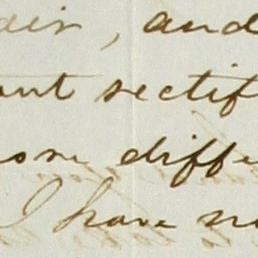 air, and
out rectif
some diffe
I have no